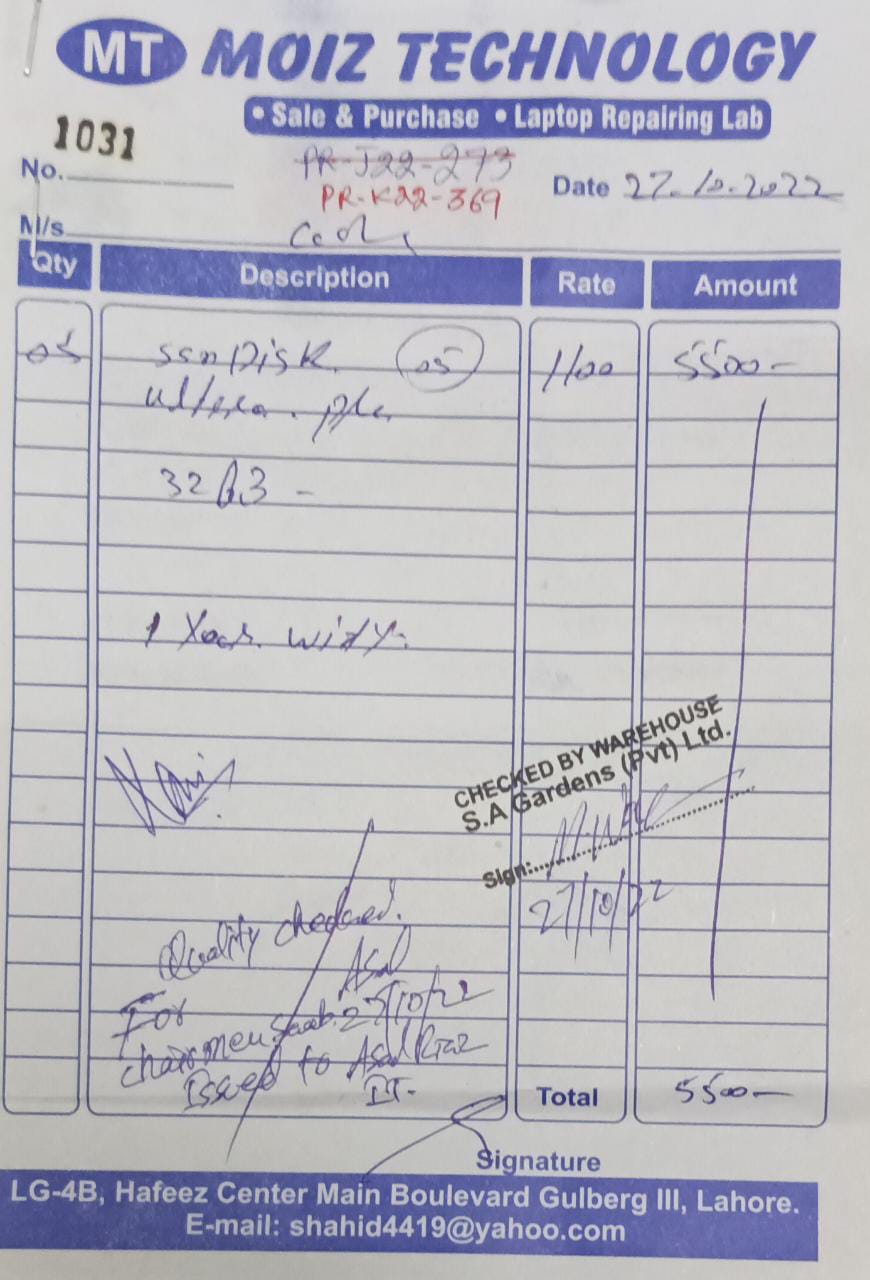 MT MOIZ TECHNOLOGY
• Sale & Purchase • Laptop Repairing Lab
1031
No.
PR-J22-273
PR-K22-369
Date 27.10.2022
M/s
Qty Description Rate Amount
05 SanDisk 05 1100 5500-
32 G.B -
1 Year
CHECKED BY WAREHOUSE
S.A Gardens (Pvt) Ltd.
Sign:
27/10/22
Quality checked.
Asad
For 27/10/22
chairmen Saab
Issued to Asad Riaz
IT-
Total 5500-
Signature
LG-4B, Hafeez Center Main Boulevard Gulberg III, Lahore.
E-mail: shahid4419@yahoo.com